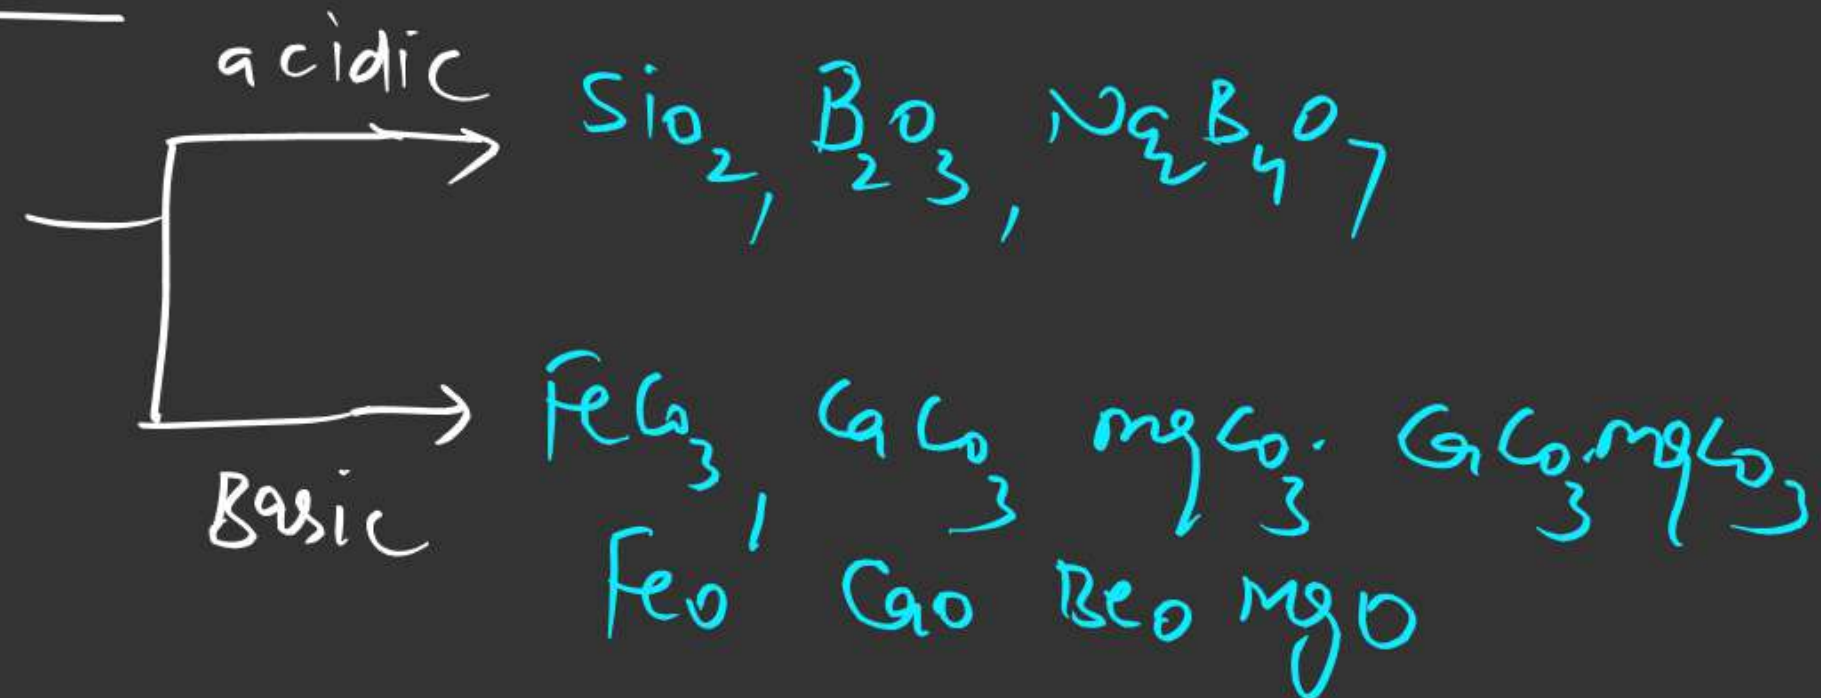 acidic
SiO₂, B₂O₃, Na₂B₄O₇
FeCO₃, CaCO₃ MgCO₃. CaCO₃.MgCO₃
Basic
FeO CaO BeO MgO